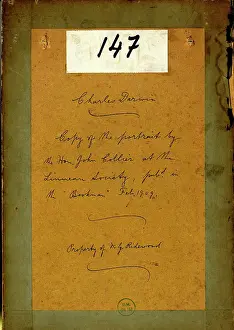 147
Charles Darwin
Copy of the portrait by
the Hon. John Collier at the
Linnean Society, publ. in
the "Bookman" Feb. 1909.
Property of W. G. Ridewood